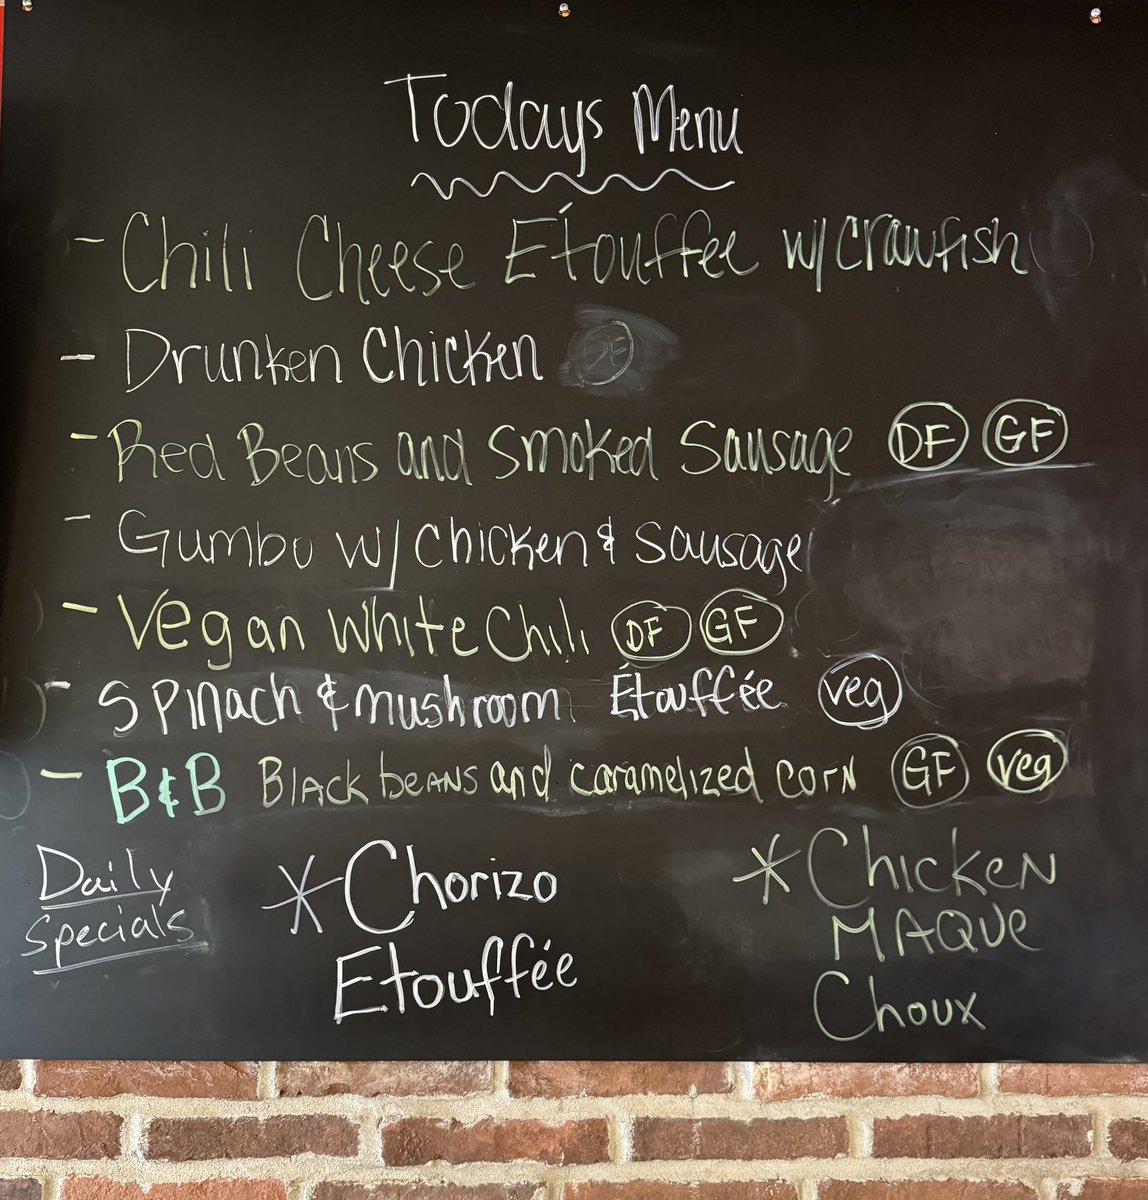 Todays Menu
- Chili Cheese Étouffee w/ crawfish
- Drunken Chicken
- Red Beans and Smoked Sausage DF GF
- Gumbo w/ chicken & sausage
- Vegan White Chili DF GF
- Spinach & mushroom Étouffée Veg
- B&B Black beans and caramelized corn GF Veg
Daily
Specials
* Chorizo
Etouffée
* Chicken
MAQUe
Choux